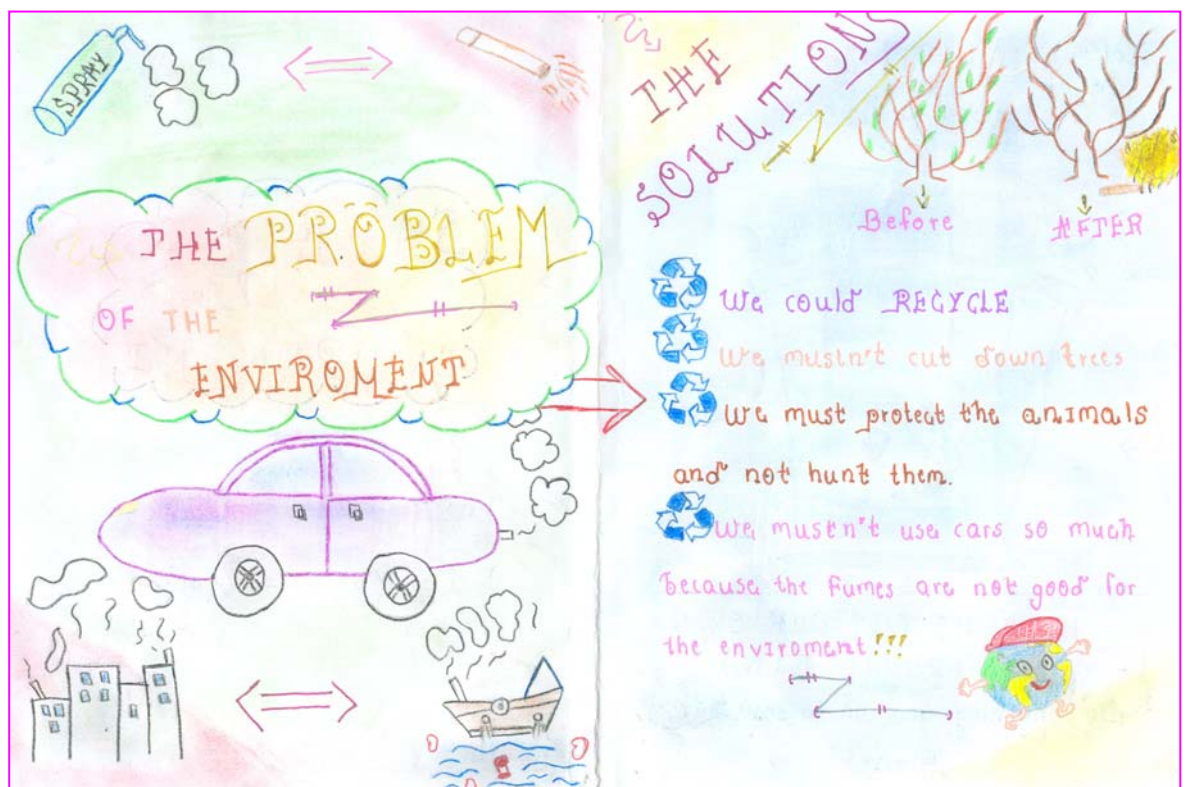 SPRAY
THE PROBLEM
OF THE
ENVIROMENT
THE
SOLUTIONS
Before
AFTER
We could RECYCLE
We mustn't cut down trees
We must protect the animals
and not hunt them.
We mustn't use cars so much
because the fumes are not good for
the enviroment!!!